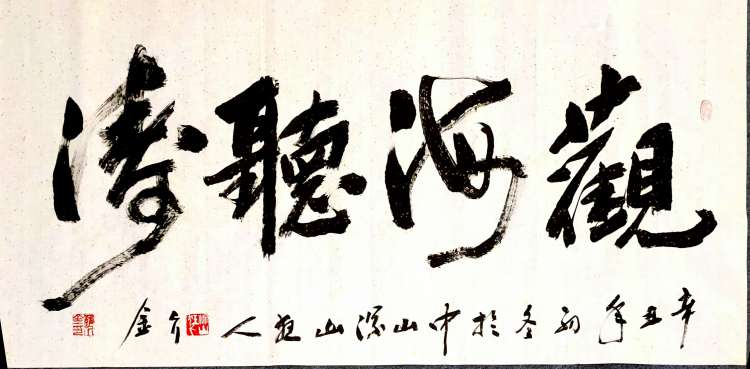 觀海聽濤
辛丑年初冬於中山深山人金